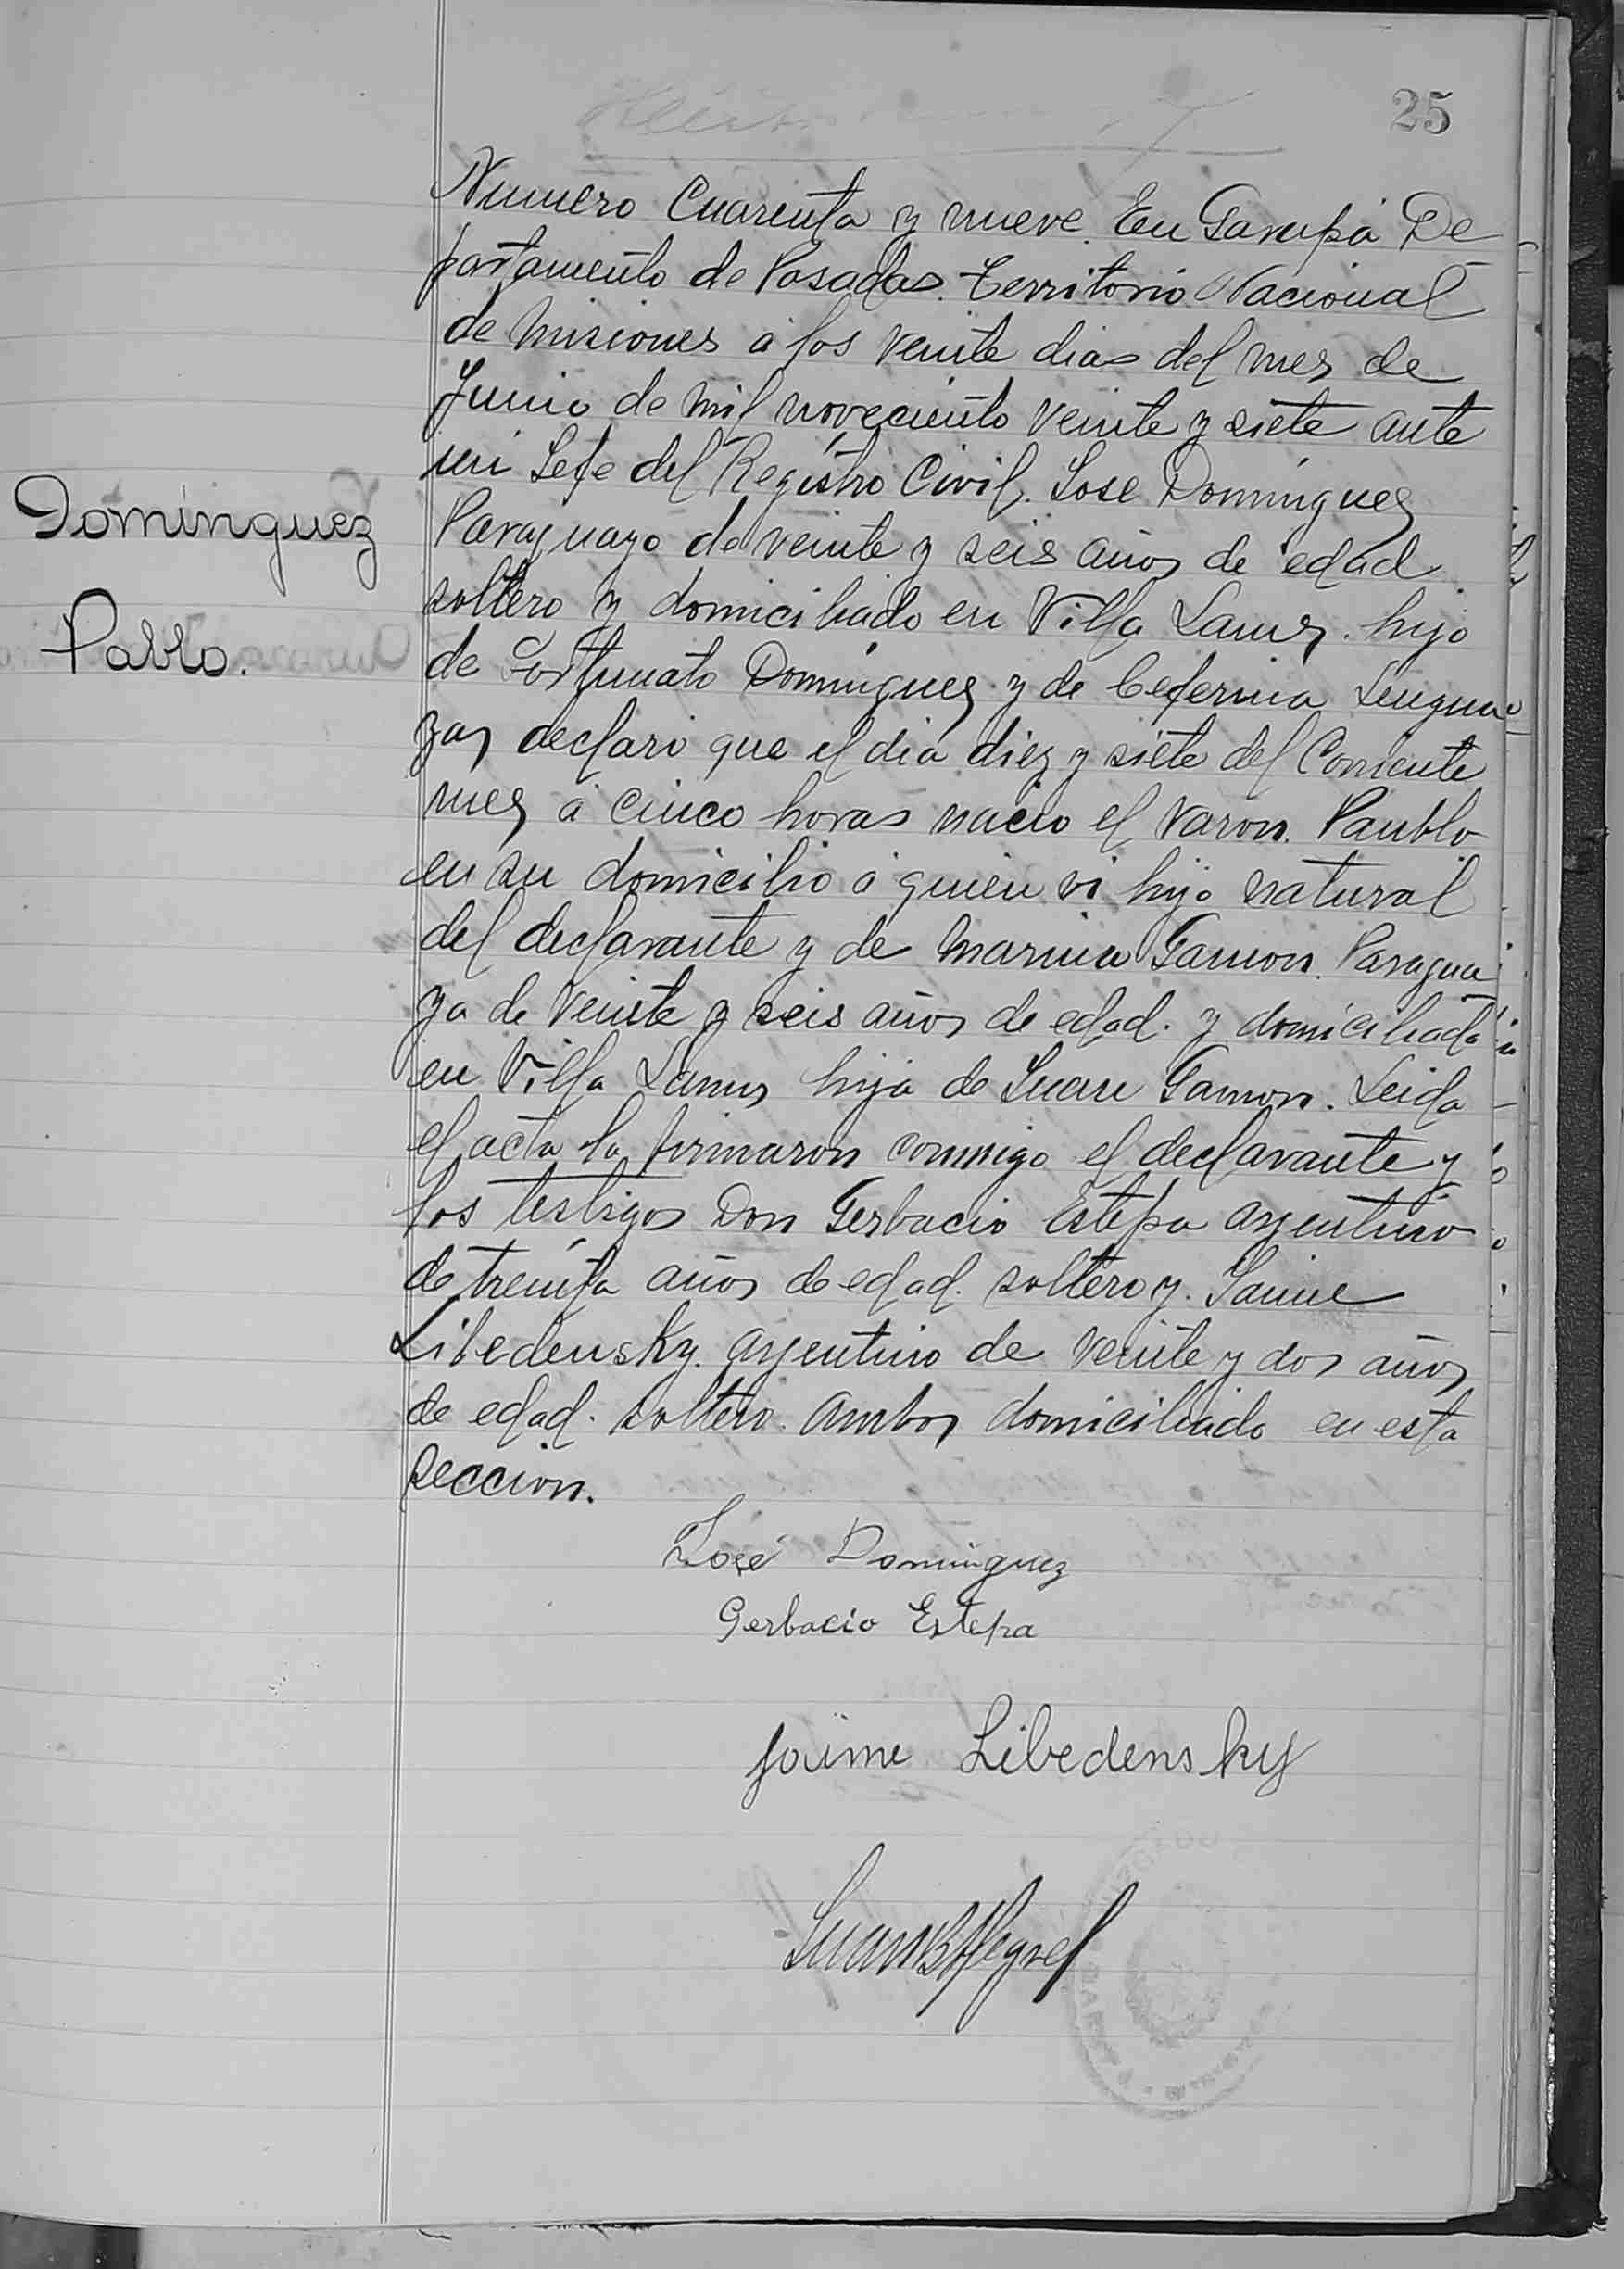 25
Numero Cuarenta y nueve. En Garupá De
partamento de Posadas. Territorio Nacional
de Misiones á los veinte dias del mes de
Junio de mil noveciento veinte y siete ante
mi Jefe del Registro Civil. Jose Domingues
Paraguayo de veinte y seis años de edad
soltero y domiciliado en Villa Lanus. hijo
de Fortunato Domingues y de Ceferina Lengua
zas declaro que el dia diez y siete del Corriente
mes á cinco horas nacio el varon. Paublo
en su domicilio á quien vi hijo natural
del declarante y de Marina Gamon. Paragua
ya de veinte y seis años de edad. y domiciliada
en Villa Lanus hija de Juan Gamon. Leida
el acta la firmaron conmigo el declarante y
los testigos Don Gerbacio Estepa argentino
de treinta años de edad. soltero y. Jaime
Libedensky. argentino de veinte y dos años
de edad. soltero. ambos domiciliado en esta
seccion.
Dominguez
Pablo.
José Dominguez
Gerbacio Estepa
Jaime Libedensky